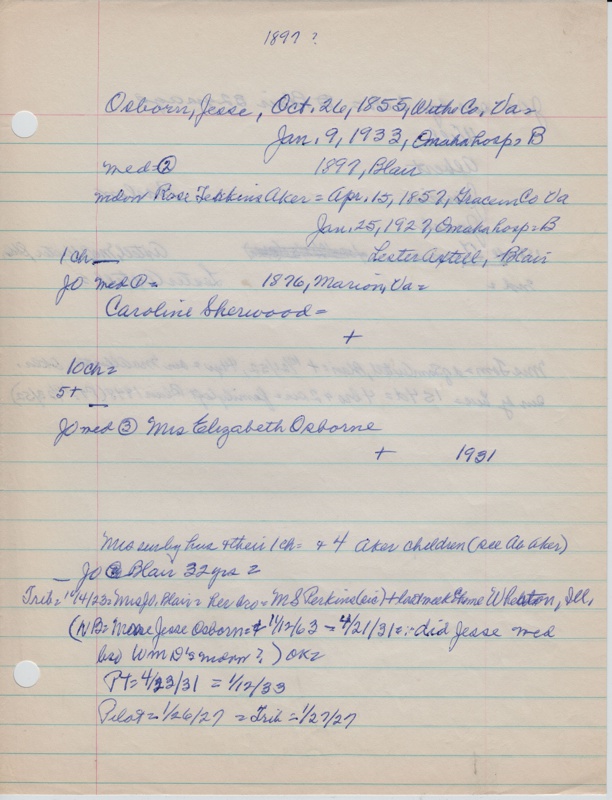 1897 ?
Osborn, Jesse, Oct. 26, 1855, Wythe Co, Va =
Jan. 9, 1933, Omaha hosp = B
med = ② 1897, Blair
Rose Aker = Apr. 15, 1857, Co Va
Jan. 25, 1927, Omaha hosp = B
1 ch = Lester Axtell, Blair
JO med ① = 1876, Marion, Va =
Caroline Sherwood =
+
10 ch =
5 +
JO med ③ Mrs Elizabeth Osborne
+ 1931
Mrs surby hus + their 1 ch = + 4 Aker children (see Ao Aker)
JO Blair 32 yrs =
Trib = 10/4/23 = Mrs JO, Blair = her bro = M S Perkins (sic) + last week Wheaton, Ill,
(NB = Jesse Osborn = + 11/12/63 - 4/21/31 = did Jesse med
? ) OK =
PT = 4/23/31 = 1/12/33
Pilot = 1/26/27 = Trib = 1/27/27